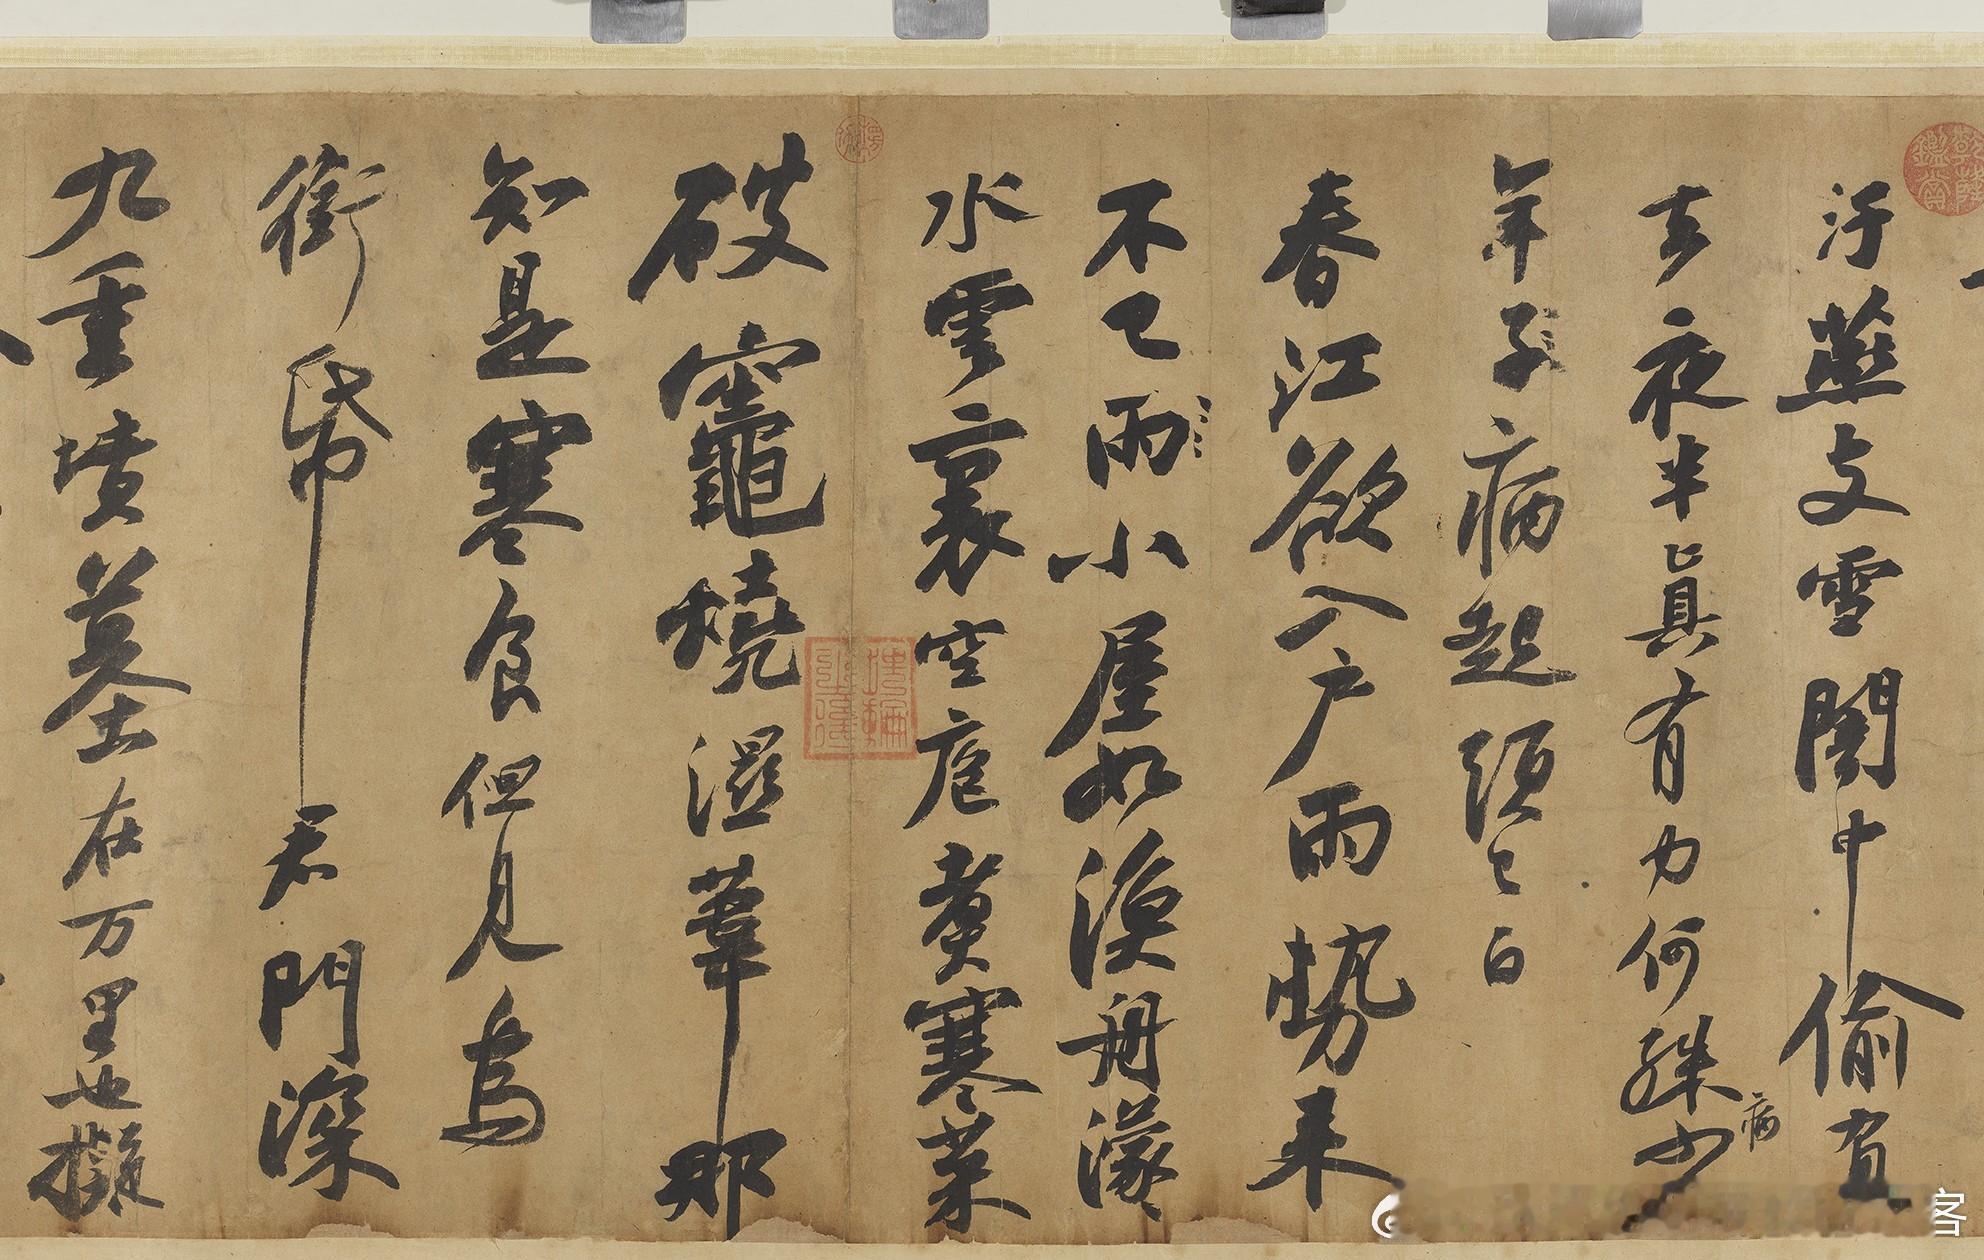 汙燕支雪闇中偷負
去夜半真有力何殊少
病
年子病起頭已白
春江欲入戶雨勢来
不已雨小屋如漁舟濛
水雲裏空庖煮寒菜
破竈燒濕葦那
知是寒食但見烏
銜帋君門深
九重墳墓在万里也擬
乾隆鑑賞
客